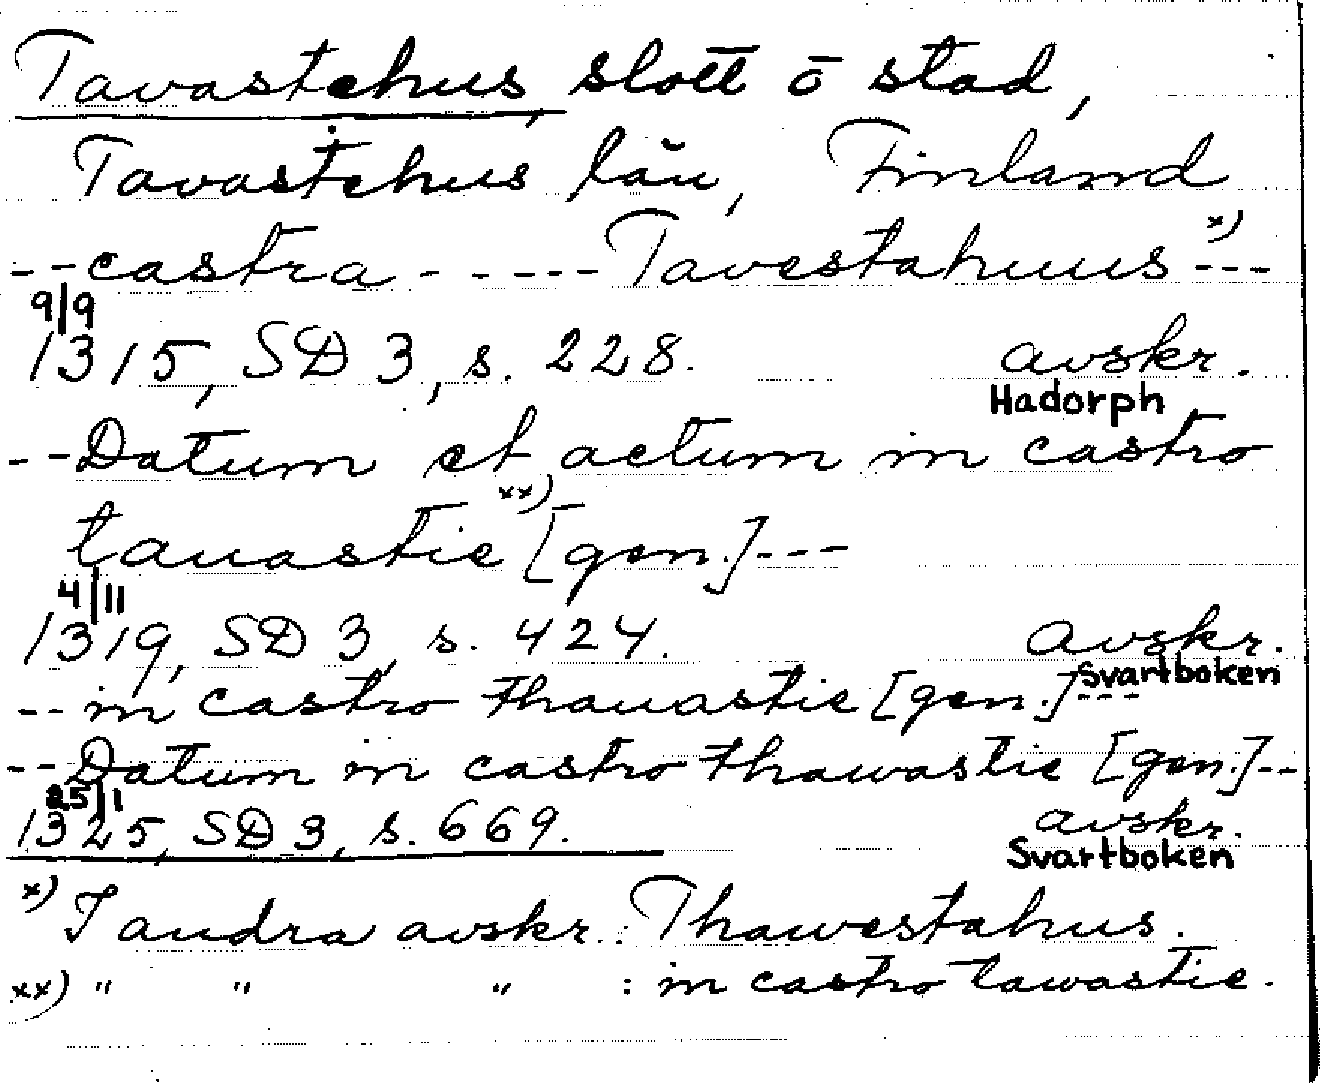 Tavastehus, slott ō stad,
Tavastehus län, Finland
--castra - - ---- Tavestahuus x) ---
9/9
1315, SD 3, s. 228. avskr.
Hadorph
--Datum et actum in castro
tauastie xx) [gen.]---
4/11
1319, SD 3, s. 424. avskr.
Svartboken
-- in castro thauastie [gen.]---
--Datum in castro thawastie [gen.]--
25/1
1325, SD 3, s. 669. avskr.
Svartboken
x) I andra avskr.: Thawestahus.
xx) " " " : in castro tawastie.